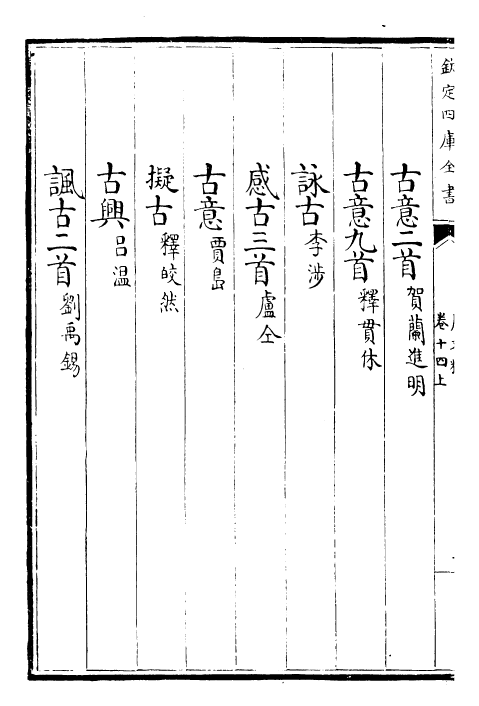 欽定四庫全書
卷十四上
古意二首賀蘭進明
古意九首釋貫休
詠古李涉
感古三首盧仝
古意賈島
擬古釋皎然
古興呂温
諷古二首劉禹錫